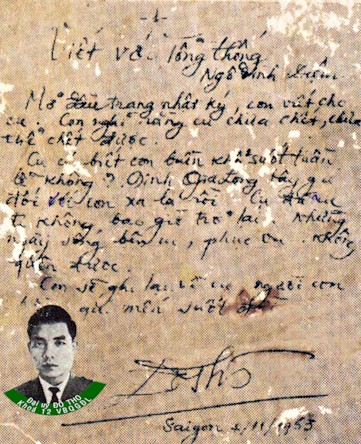 - 1 -
Viết về Tổng thống
Ngô Đình Diệm.
Mở đầu trang nhật ký, con viết cho
cụ. Con nghĩ rằng cụ chưa chết, chưa
thể chết được.
Cụ có biết con buồn khổ suốt tuần
lễ không?
đối với con xa lạ rồi. Cụ
không bao giờ trở lại. Những
ngày sống bên cụ, phục vụ không
quên được.
Con sẽ ghi lại về cụ người con
quí mến suốt đời
Saigon 2/11/1963
Đại uý ĐỖ THỌ
Khoá 12 VBQGĐL